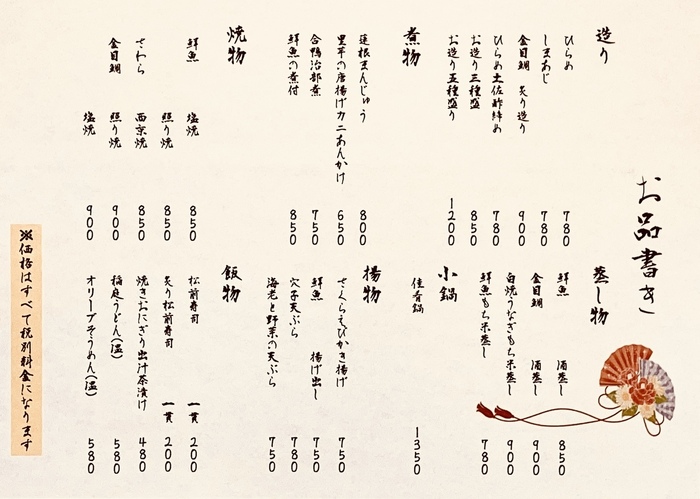 お品書き
造り
ひらめ 780
しまあじ 780
金目鯛 炙り造り 900
ひらめ土佐酢締め 780
お造り三種盛り 850
お造り五種盛り 1200
煮物
蓮根まんじゅう 800
里芋の唐揚げカニあんかけ 650
合鴨治部煮 750
鮮魚の煮付 850
焼物
鮮魚 塩焼 850
照り焼 850
さわら 西京焼 850
金目鯛 照り焼 900
塩焼 900
蒸し物
鮮魚 酒蒸し 850
金目鯛 酒蒸し 900
白焼うなぎもち米蒸し 900
鮮魚もち米蒸し 780
小鍋
佳肴鍋 1350
揚物
さくらえびかき揚げ 750
鮮魚 揚げ出し 750
穴子天ぷら 780
海老と野菜の天ぷら 750
飯物
松前寿司 一貫 200
炙り松前寿司 一貫 200
焼きおにぎり出汁茶漬け 480
稲庭うどん(温) 580
オリーブそうめん(温) 580
※価格はすべて税別料金になります